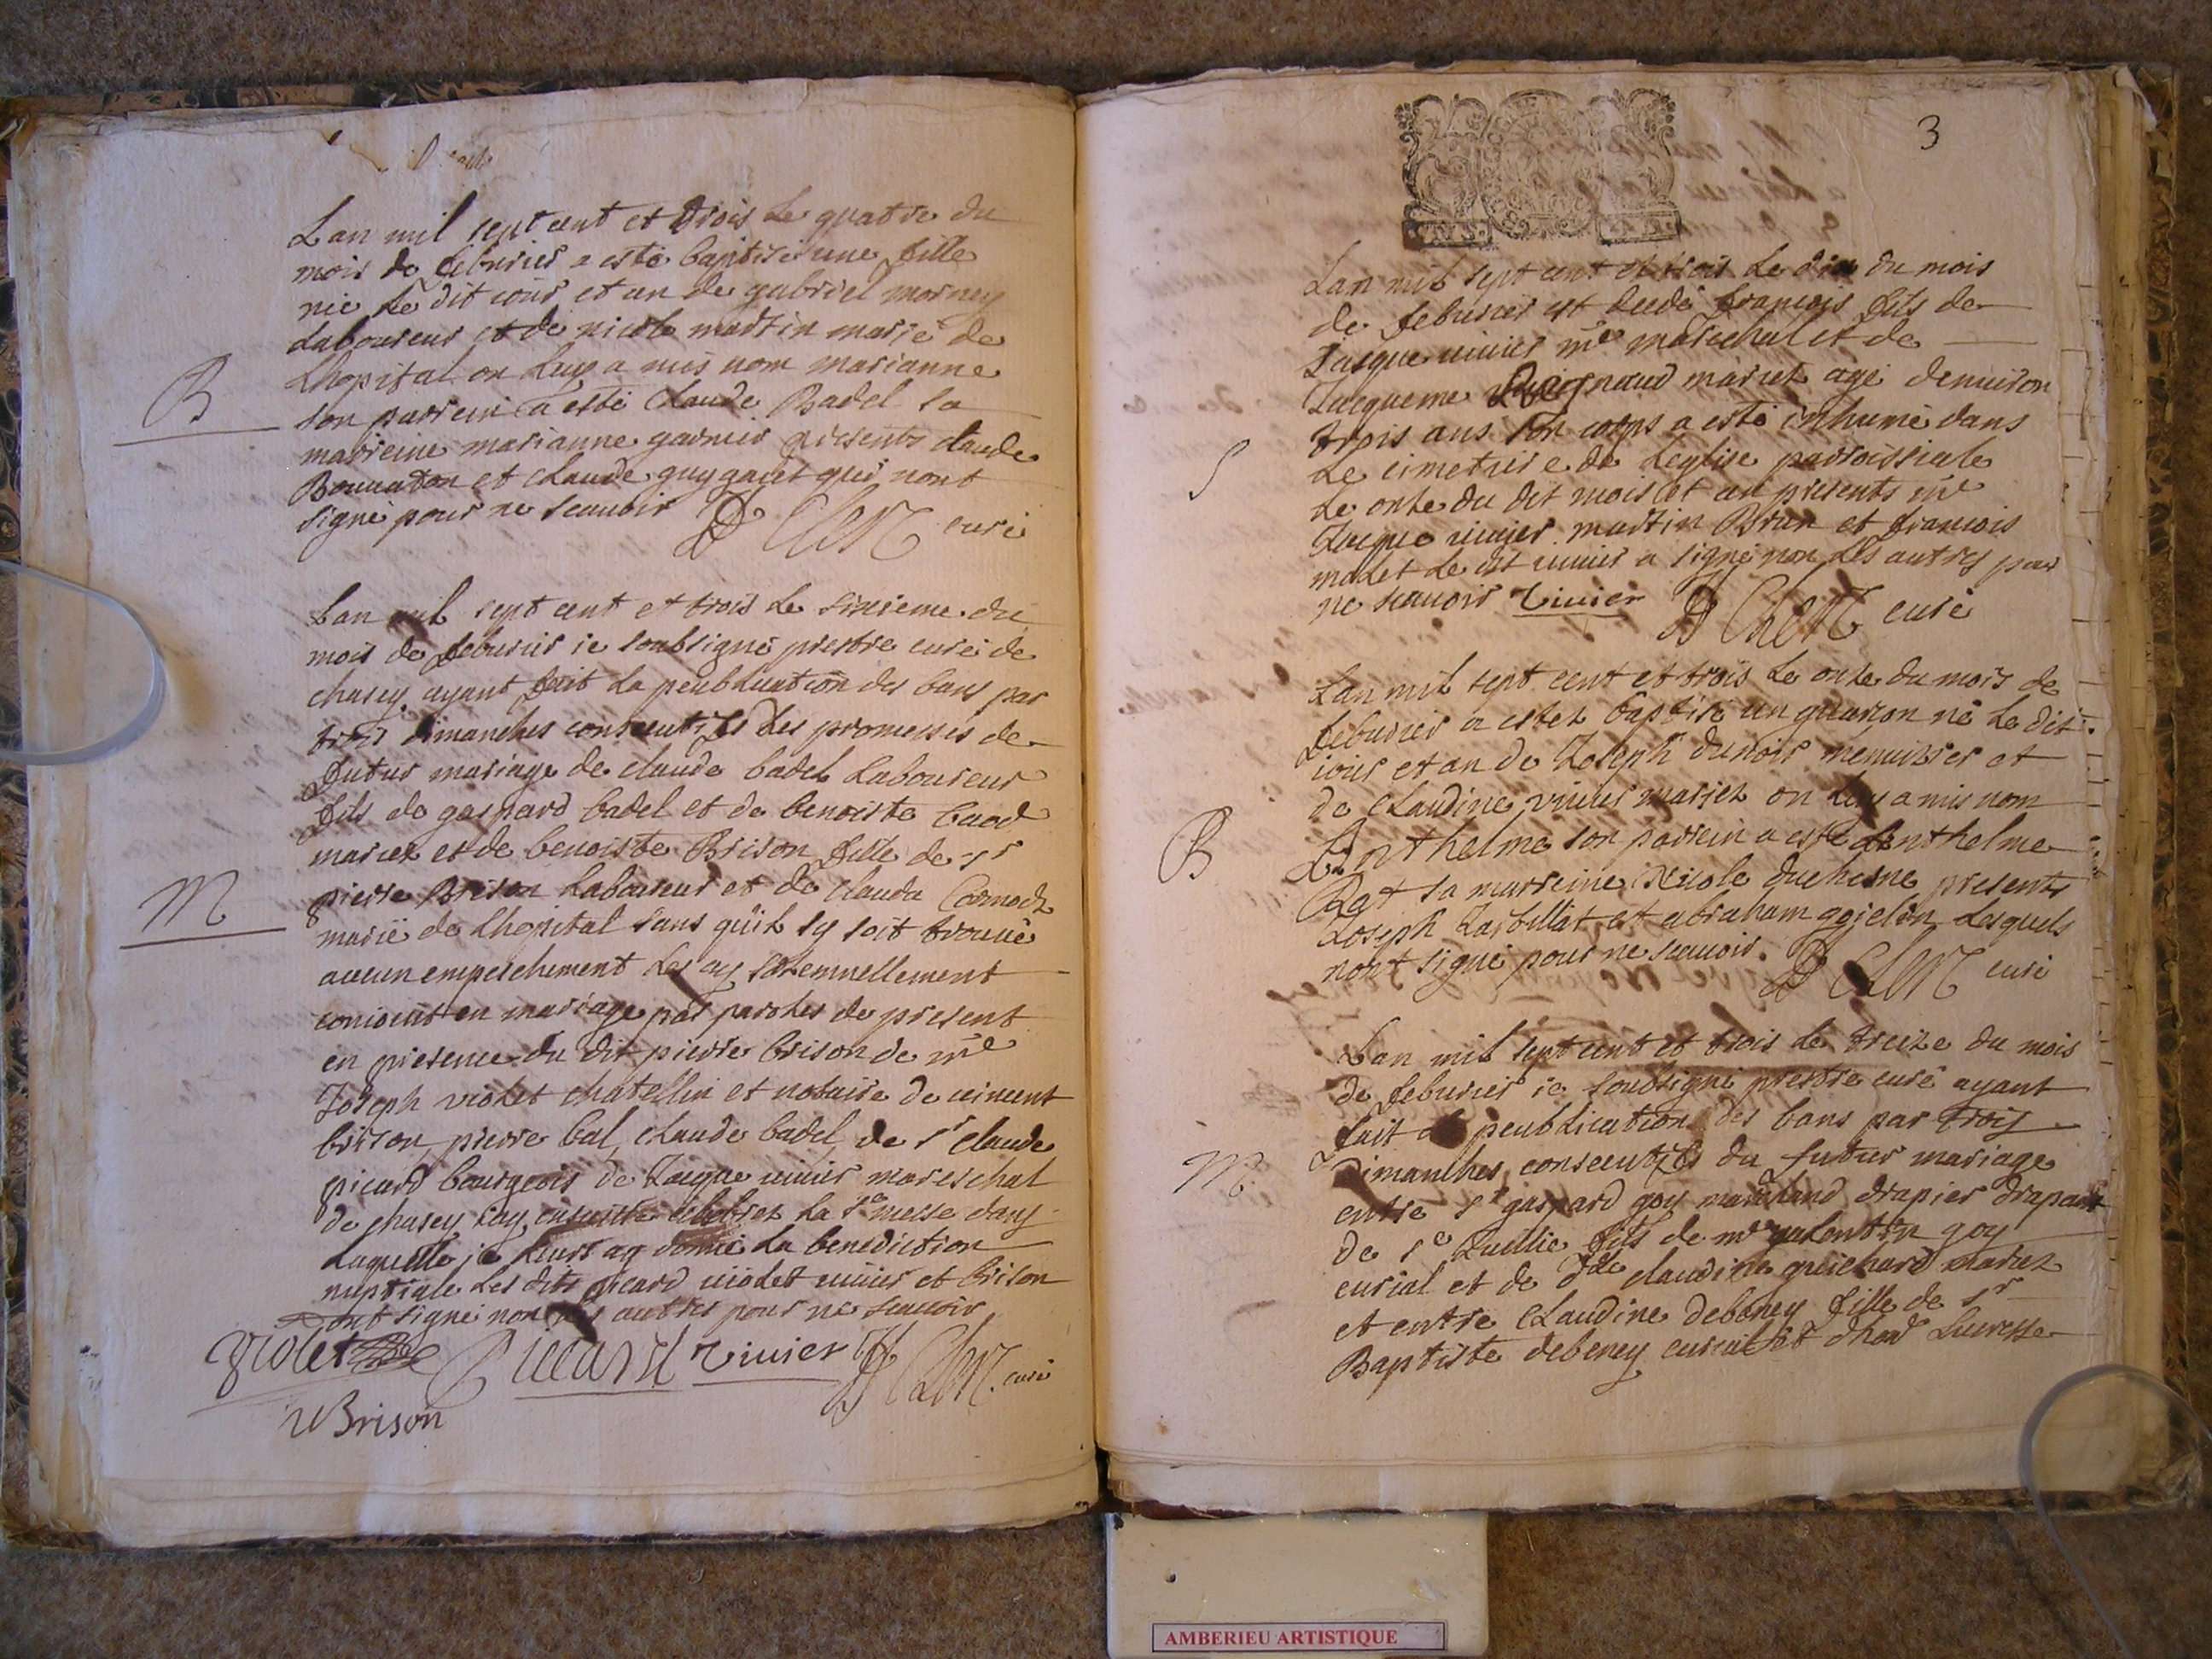 Lan mil sept cent et trois Le quatre du
mois de feburier a esté baptisé une fille
nie Le dit iour et an de gabriel morney
Laboureur et de nicole martin marié de
Lhopital on Luy a mis nom marianne
B
son parrein a esté Claude Badel sa
marreine marianne garnier presents claude
et claude guygacet qui nont
signé pour ne scauoir curé
Lan mil sept cent et trois Le sixieme du
mois de feburier ie soubsigné prestre curé de
chasey ayant fait La peublication des bans par
trois dimanches consecutifs des promesses de
futur mariage de claude badel Laboureur
fils de gaspard badel et de benoiste
mariez et de benoiste Brison fille de
M
pierre Brison Laboureur et de clauda
marié de Lhopital sans quil sy soit trouué
aucun empeschement Les ay solemnellement
conioint en mariage par paroles de present
en presence du dit pierre brison de me
Joseph violet chatellin et notaire de uincent
brison, pierre bal, claude badel, de sr claude
picard bourgeois de Jaque uiuier mareschal
de chasey iay ensuitte celebrez La ste messe dans
Laquelle ie Leurs ay donné La benediction
nuptiale Les dits picard uiolet uiuier et brison
ont signé non les autres pour ne scauoir
violet Piccard viuier curé
Brison
3
Lan mil sept cent et trois Le dix du mois
de feburier est decedé francois fils de
Jaque uiuier me mareschal et de
Jaqueme mariez agé denuiron
trois ans son corps a esté inhumé dans
S
Le cimetiere de Leglise parroissiale
Le onze du dit mois et an presents me
Jaque uiuier martin Brun et francois
molet Le dit uiuier a signé non Les autres pour
ne scauoir viuier curé
Lan mil sept cent et trois Le onze du mois de
feburier a estez baptisé un guarcon né Le dit
iour et an de Joseph dunoir menuisier et
de claudine viuier mariez on Luy a mis nom
B
Anthelme son parrein a esté Anthelme
Rat sa marreine Nicole duchesne presents
Joseph et abraham Lesquels
nont signé pour ne scauoir. curé
Lan mil sept cent et trois Le treize du mois
de feburier ie soubsigné prestre curé ayant
fait la peublication des bans par trois
M
dimanches consecutifs du futur mariage
entre sr gaspard goy marchand drapier drapant
de se fils de me valentin goy
curial et de dlle claudine guichard mariez
et entre claudine debeney fille de sr
Baptiste debeney curial et dhonn Lucresse
AMBERIEU ARTISTIQUE